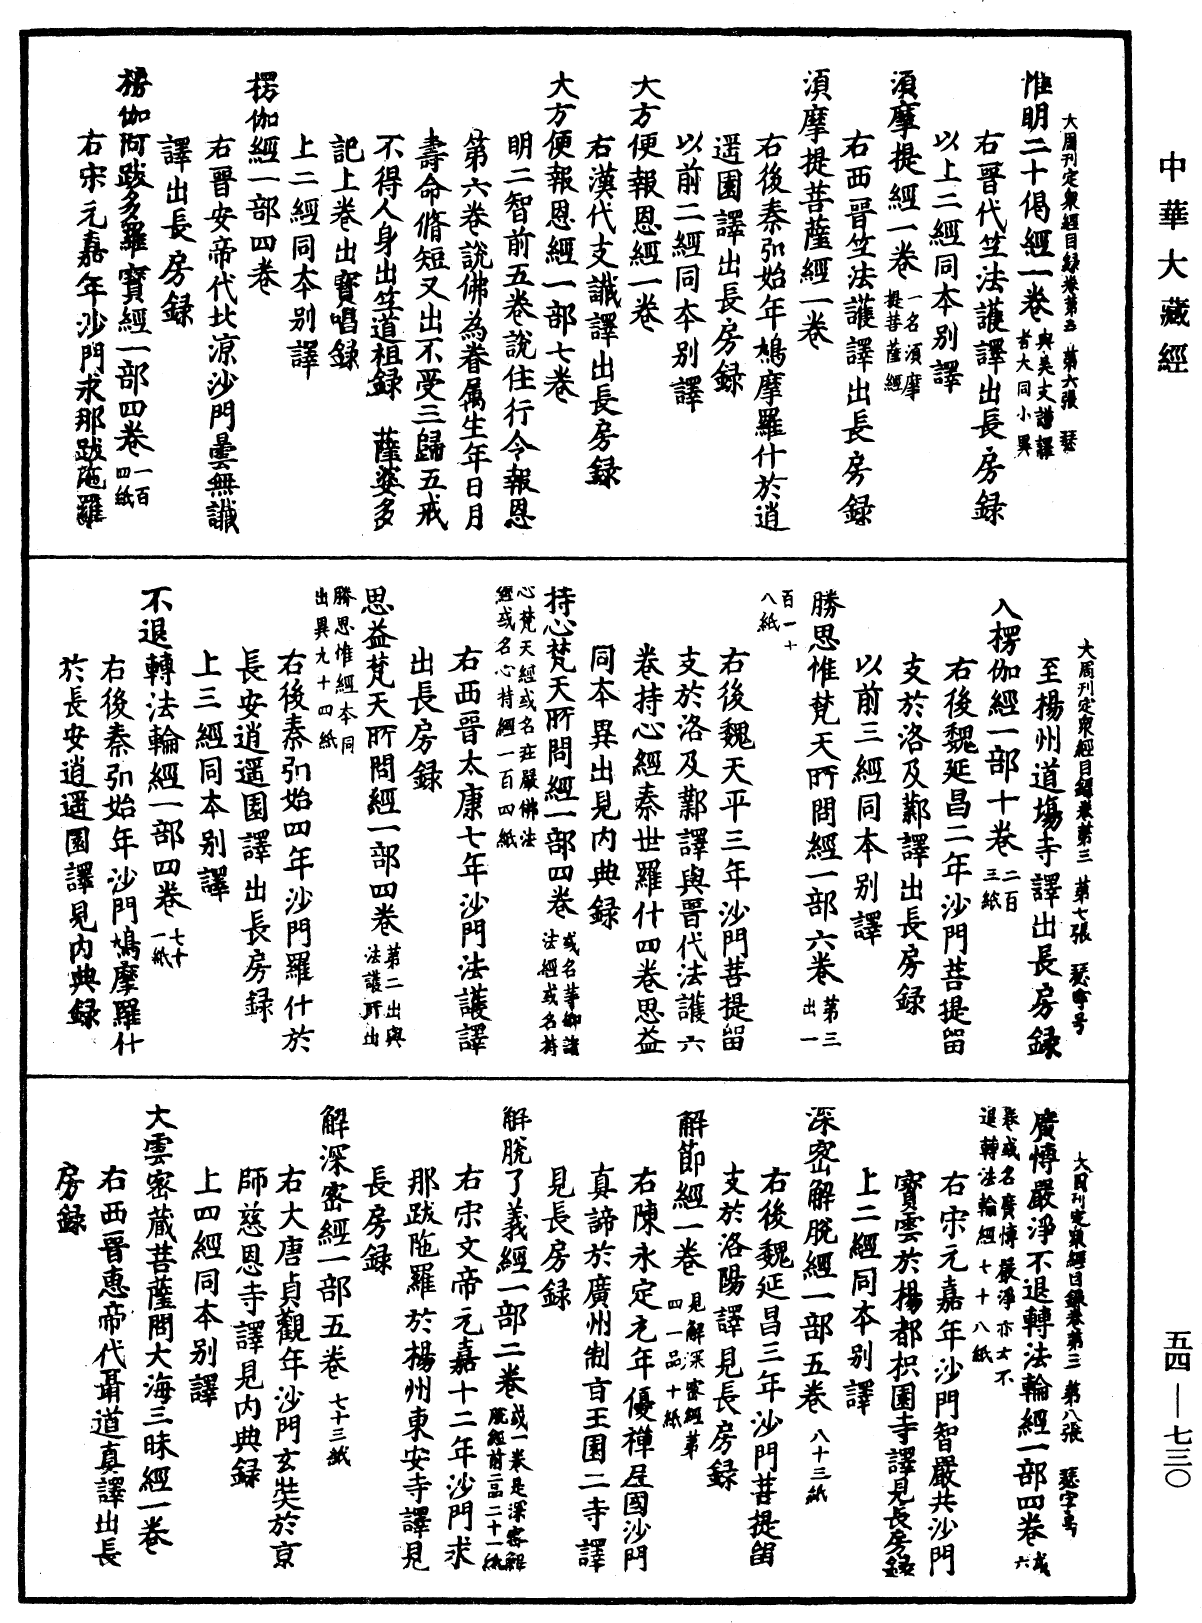 中華大藏經
大周刊定衆經目録卷第三　第六張　瑟
惟明二十偈經一卷　與吴支謙譯者大同小異
右晉代竺法護譯出長房録
以上二經同本别譯
須摩提經一卷　一名須摩提菩薩經
右西晉竺法護譯出長房録
須摩提菩薩經一卷
右後秦弘始年鳩摩羅什於逍
遥園譯出長房録
以前二經同本别譯
大方便報恩經一卷
右漢代支讖譯出長房録
大方便報恩經一部七卷
明二智前五卷說住行令報恩
第六卷說佛為眷属生年日月
壽命脩短又出不受三歸五戒
不得人身出竺道祖録　薩婆多
記上卷出寳唱録
上二經同本别譯
楞伽經一部四卷
右晉安帝代北涼沙門曇無讖
譯出長房録
楞伽阿跋多羅寳經一部四卷　一百四紙
右宋元嘉年沙門求那跋陁羅
大周刊定衆經目録卷第三　第七張　瑟字号
至楊州道塲寺譯出長房録
入楞伽經一部十卷　二百三紙
右後魏延昌二年沙門菩提留
支於洛及鄴譯出長房録
以前三經同本别譯
勝思惟梵天所問經一部六卷　第三出一
百一十八紙
右後魏天平三年沙門菩提留
支於洛及鄴譯與晋代法護六
卷持心經秦世羅什四卷思益
同本異出見内典録
持心梵天所問經一部四卷　或名等御諸法經或名持
心梵天經或名莊嚴佛法經或名心持經一百四紙
右西晋太康七年沙門法護譯
出長房録
思益梵天所問經一部四卷　第二出與法護所出
勝思惟經本同出異九十四紙
右後秦弘始四年沙門羅什於
長安逍遥園譯出長房録
上三經同本别譯
不退轉法輪經一部四卷　七十一紙
右後秦弘始年沙門鳩摩羅什
於長安逍遥園譯見内典録
大周刊定衆經目録卷第三　第八張　瑟字号
廣慱嚴淨不退轉法輪經一部四卷　或六
卷或名廣慱嚴淨亦云不退轉法輪經七十八紙
右宋元嘉年沙門智嚴共沙門
寳雲於楊都枳園寺譯見長房録
上二經同本别譯
深密解脫經一部五卷　八十三紙
右後魏延昌三年沙門菩提留
支於洛陽譯見長房録
解節經一卷　見解深密經第四一品十紙
右陳永定元年優禅尼國沙門
真諦於廣州制旨王園二寺譯
見長房録
解脫了義經一部二卷　或一卷是深密解脫經前二品二十一紙
右宋文帝元嘉十二年沙門求
那跋陁羅於楊州東安寺譯見
長房録
解深密經一部五卷　七十三紙
右大唐貞觀年沙門玄奘於京
師慈恩寺譯見内典録
上四經同本别譯
大雲密藏菩薩問大海三昧經一卷
右西晋惠帝代聶道真譯出長
房録
五四—七三〇